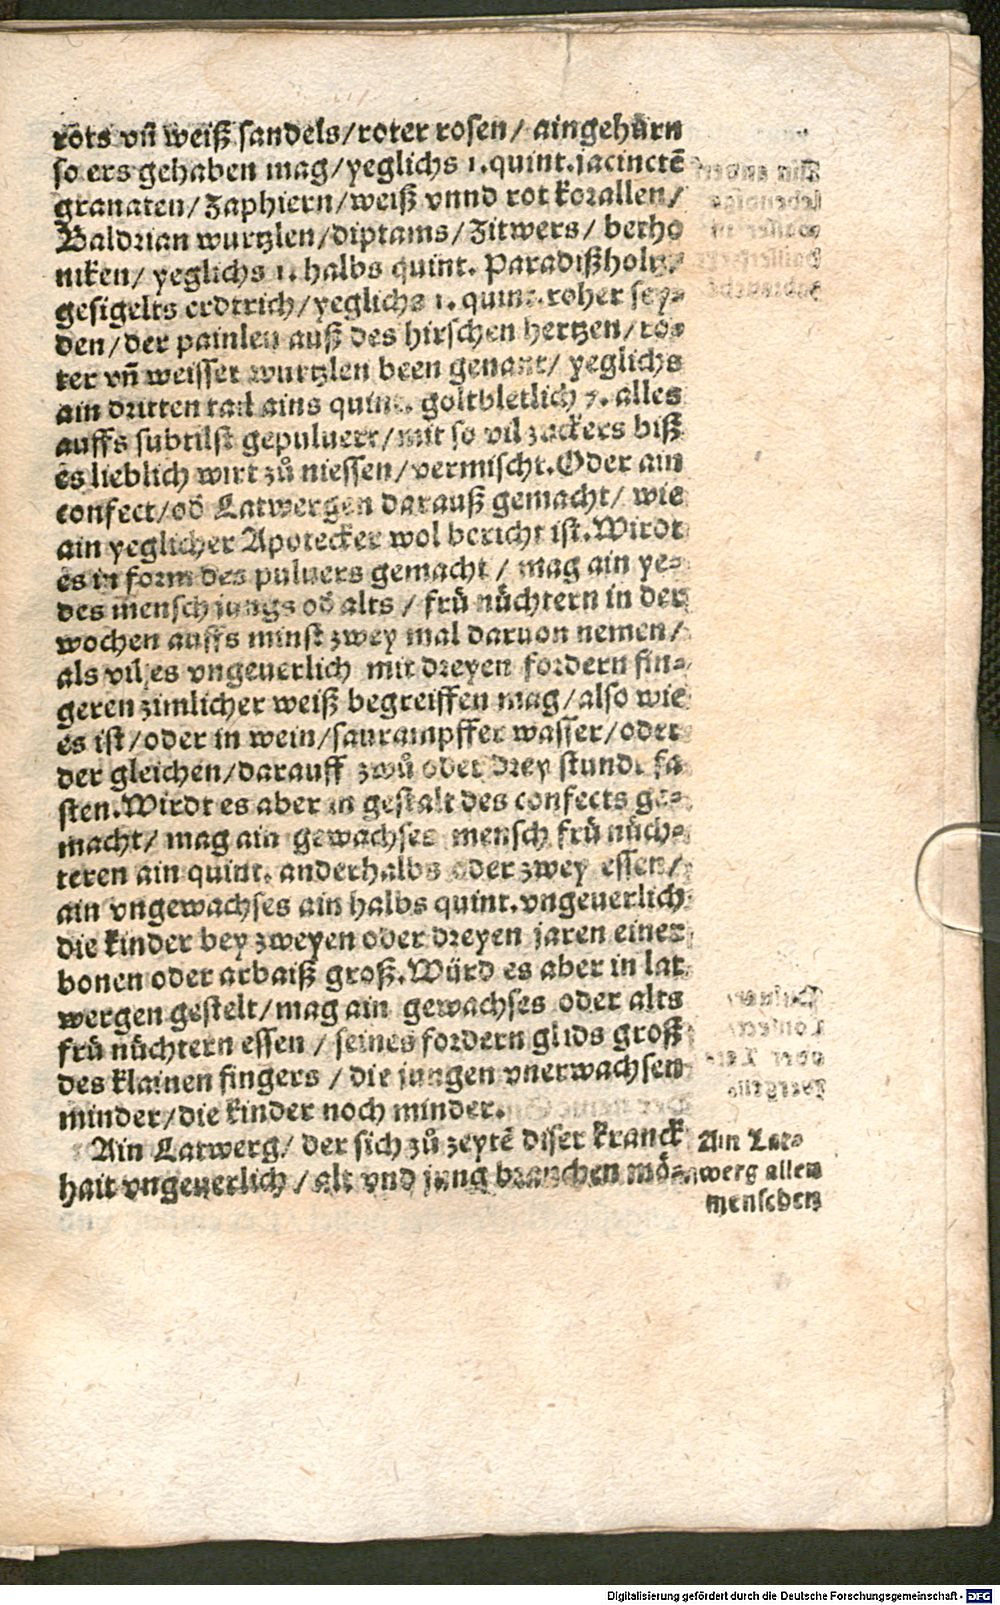 rots vn̄ weiß sandels/roter rosen/ aingehürn
so ers gehaben mag/yeglichs 1.quint.jacinctē
granaten/Zaphiern/weiß vnnd rot korallen/
Baldrian wurtzlen/diptams/Zitwers/ betho
niken/ yeglichs 1. halbs quint. Paradißholtz/
gesigelts erdtrich/yeglichs 1. quint.roher sey⸗
den/der painlen auß des hirschen hertzen/ ro⸗
ter vn̄ weisser wurtzlen been genant/ yeglichs
ain dritten tail ains quint. goltbletlich 7. alles
auffs subtilst gepuluert/mit so vil zuckers biß
es lieblich wirt zů niessen/vermischt.Oder ain
confect/od̄ Latwergen darauß gemacht/ wie
ain yeglicher Apotecker wol bericht ist.Wirdt
es in form des puluers gemacht / mag ain ye⸗
des mensch jungs od̄ alts / frü nüchtern in der
wochen auffs minst zwey mal daruon nemen/
als vil es vngeuerlich mit dreyen fordern fin⸗
geren zimlicher weiß begreiffen mag/also wie
es ist/oder in wein/saurampffer wasser/oder
der gleichen/darauff zwů oder drey stund fa
sten.Wirdt es aber in gestalt des confects ge⸗
macht/ mag ain gewachses mensch frü nüch⸗
teren ain quint. anderhalbs oder zwey essen/
ain vngewachses ain halbs quint.vngeuerlich
die kinder bey zweyen oder dreyen jaren einer
bonen oder arbaiß groß.Würd es aber in lat
wergen gestelt/mag ain gewachses oder alts
frü nüchtern essen / seines fordern glids groß
des klainen fingers / die jungen vnerwachsen
minder/die kinder noch minder.
Ain Latwerg/ der sich zů zeytē diser kranck
hait vngeuerlich / alt vnd jung brauchen mö⸗
Ain Lat⸗
werg allen
menschen
Digitalisierung gefördert durch die Deutsche Forschungsgemeinschaft - DFG